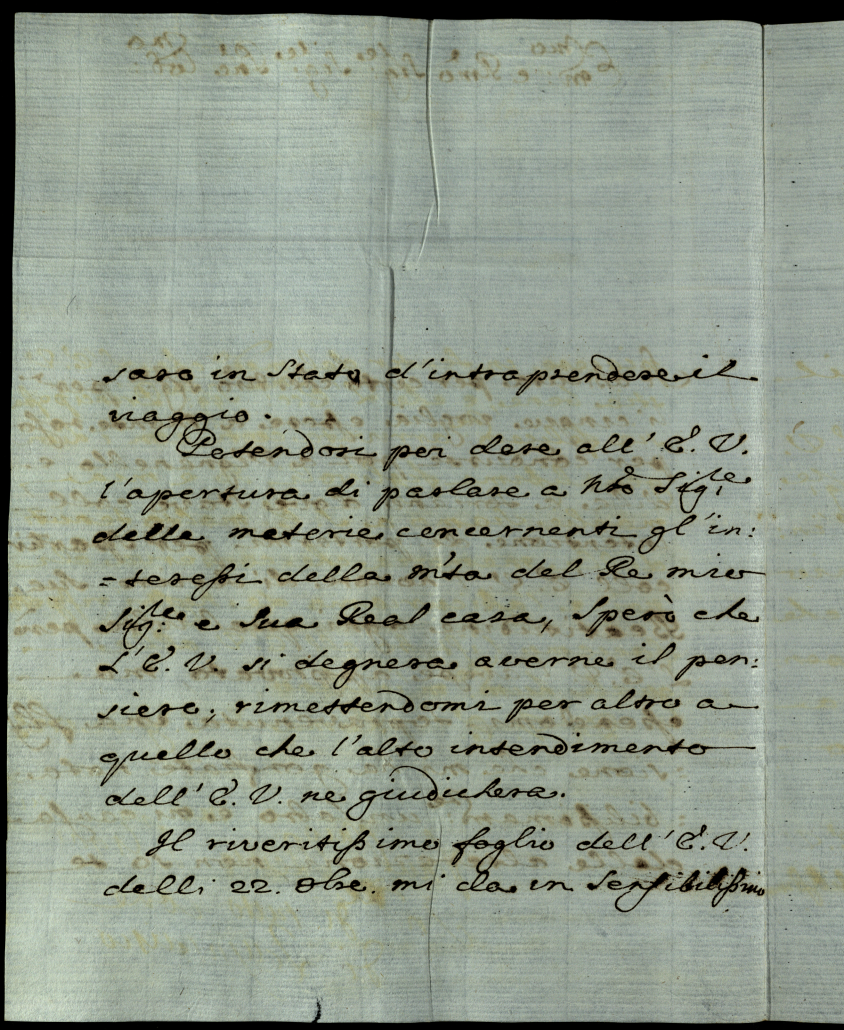 saro in Stato d'intraprendere il
viaggio.
Potendosi poi dare all' E. V.
l'apertura di parlare a Nro Sig.re
delle materie concernenti gl'in:
=teressi della M.tà del Re mio
Sig.re e Sua Real casa, Sperò che
L'E. V. si degnera averne il pen:
siero, rimettendomi per altro a
quello che l'alto intendimento
dell' E. V. ne giudichera.
Il riveritissimo foglio dell' E. V.
delli 22. 8bre. mi da in Sensibilissimo